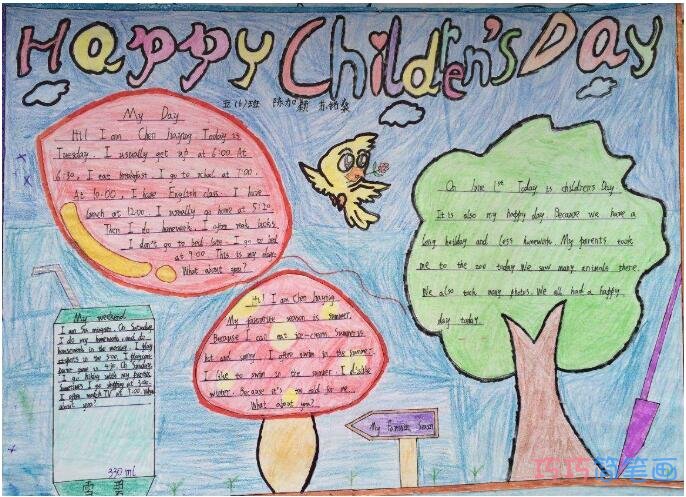 Happy Children's Day
五(6)班 陈加颖
My Day
Hi! I am Chen Today is
Tuesday. I usually get up at 6:00. At
6:30, I eat breakfast. I go to school at 7:00.
At 10:00, I have English class. I have
lunch at 12:00. I usually go home at 5:20
Then I do homework. I often read books
I don't go to bed late. I go to bed
at 9:00 This is my day.
What about you?
On June 1st Today is children's Day.
It is also my happy day. Because we have a
long holiday and less homework. My parents took
me to the zoo today. We saw many animals there.
We also took many photos. We all had a happy
day today
Hi! I am Chen
My favourite season is summer.
Because I can eat ice-cream. Summer is
hot and sunny. I often swim in the summer.
I like to swim in the summer. I dislike
winter. Because it's too cold for me...
What about you?
My weekend
I am On Saturday,
I do my homework, and do
housework in the morning. I play
sports in the
game at 4:30. On Sunday,
I go hiking with my
I go shopping at
I often watch TV at 7:00. What
about you?
330ml
My Favourite Season
巧巧简笔画